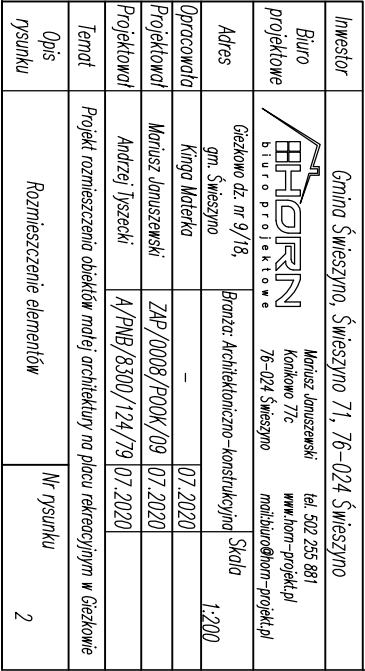 Inwestor
Gmina Świeszyno, Świeszyno 71, 76-024 Świeszyno
Biuro
projektowe
HORN
biuro projektowe
Mariusz Januszewski
Konikowo 77c
76-024 Świeszyno
tel. 502 255 881
www.horn-projekt.pl
mail:biuro@horn-projekt.pl
Adres
Giezkowo dz. nr 9/18,
gm. Świeszyno
Branża: Architektoniczno-konstrukcyjna
Skala
1:200
Opracowała Kinga Materka - 07.2020
Projektował Mariusz Januszewski ZAP/0008/POOK/09 07.2020
Projektował Andrzej Tyszecki A/PNB/8300/124/79 07.2020
Temat Projekt rozmieszczenia obiektów małej architektury na placu rekreacyjnym w Giezkowie
Opis
rysunku
Rozmieszczenie elementów
Nr rysunku
2